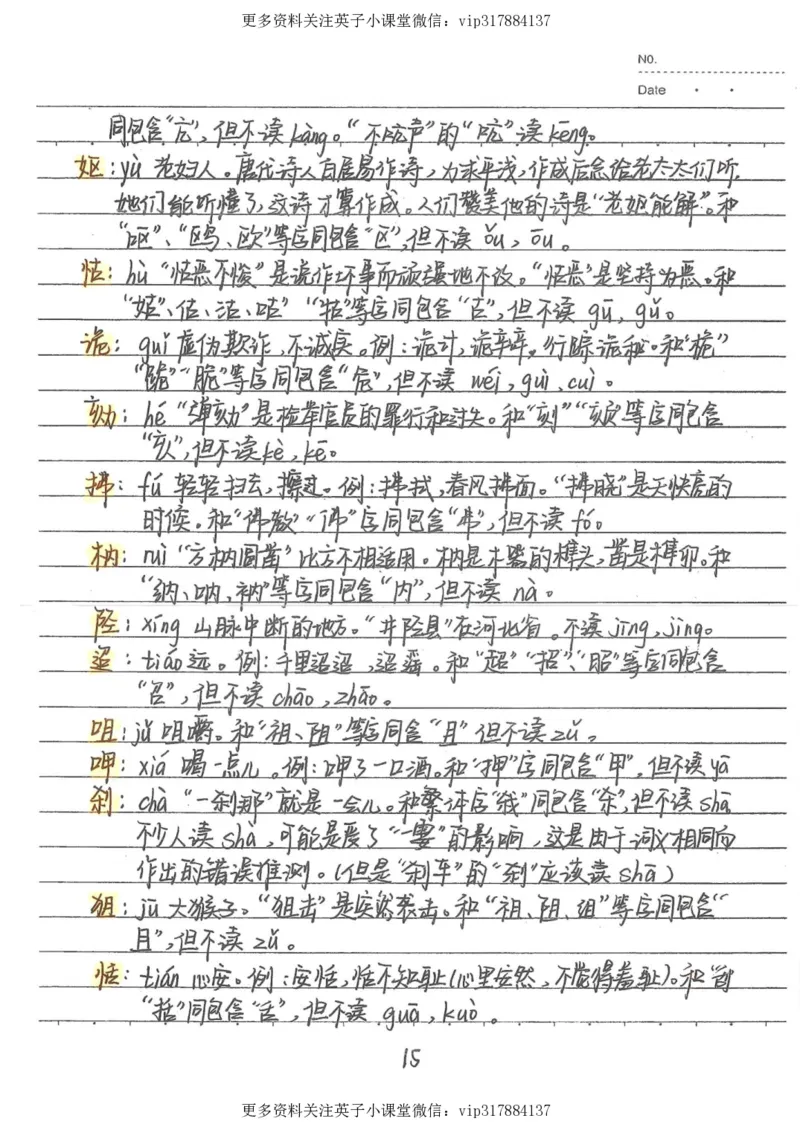 更多资料关注英子小课堂微信：vip317884137
NO.
Date
同包含“亢”，但不读kàng。“不吭声”的“吭”读kēng。
妪：yù 老妇人。唐代诗人白居易作诗，力求平浅，作成后念给老太太们听，
她们能听懂了，这诗才算作成。人们赞美他的诗是“老妪能解”。和
“呕”、“鸥、欧”等字同包含“区”，但不读 ǒu，ōu。
怙：hù “怙恶不悛”是说作坏事而顽强地不改。“怙恶”是坚持为恶。和
“姑”、估、沽、咕” “牯”等字同包含“古”，但不读 gū，gǔ。
诡：guǐ 虚伪欺诈，不诚实。例：诡计，诡辩，行踪诡秘。和“桅”
“跪”“脆”等字同包含“危”，但不读 wéi，guì，cuì。
劾：hé “弹劾”是检举官员的罪行和过失。和“刻”“颏”等字同包含
“亥”，但不读kè，kē。
拂：fú 轻轻扫去，擦过。例：拂拭，春风拂面。“拂晓”是天快亮的
时候。和“佛教”“佛”字同包含“弗”，但不读fó。
枘：ruì “方枘圆凿”比方不相适用。枘是木器的榫头，凿是榫卯。和
“纳、呐、衲”等字同包含“内”，但不读 nà。
陉：xíng 山脉中断的地方。“井陉县”在河北省。不读jīng，jìng。
迢：tiáo远。例：千里迢迢，迢遥。和“超”“招”、“昭”等字同包含
“召”，但不读 chāo，zhāo。
咀：jǔ 咀嚼。和“祖、阻”等字同含“且”但不读zǔ。
呷：xiá 喝一点儿。例：呷了一口酒。和“押”字同包含“甲”，但不读yā
刹：chà “一刹那”就是一会儿。和繁体字“殺”同包含“杀”，但不读shā
不少人读shà，可能是受了“一霎”的影响，这是由于词义相同而
作出的错误推测。（但是“刹车”的“刹”应该读shā）
狙：jū 大猴子。“狙击”是突然袭击。和“祖、阻、组”等字同包含“
且”，但不读 zǔ。
恬：tián 心安。例：安恬，恬不知耻（心里安然，不觉得羞耻）。和“刮
“括”同包含“舌”，但不读 guā，kuò。
15
更多资料关注英子小课堂微信：vip317884137